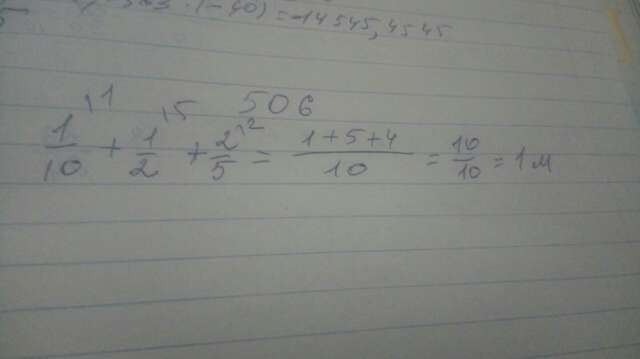 (-40) = -14545,4545
506
1/10 ,1 + 1/2 ,5 + 2/5 ,2 = (1+5+4)/10 = 10/10 = 1 м